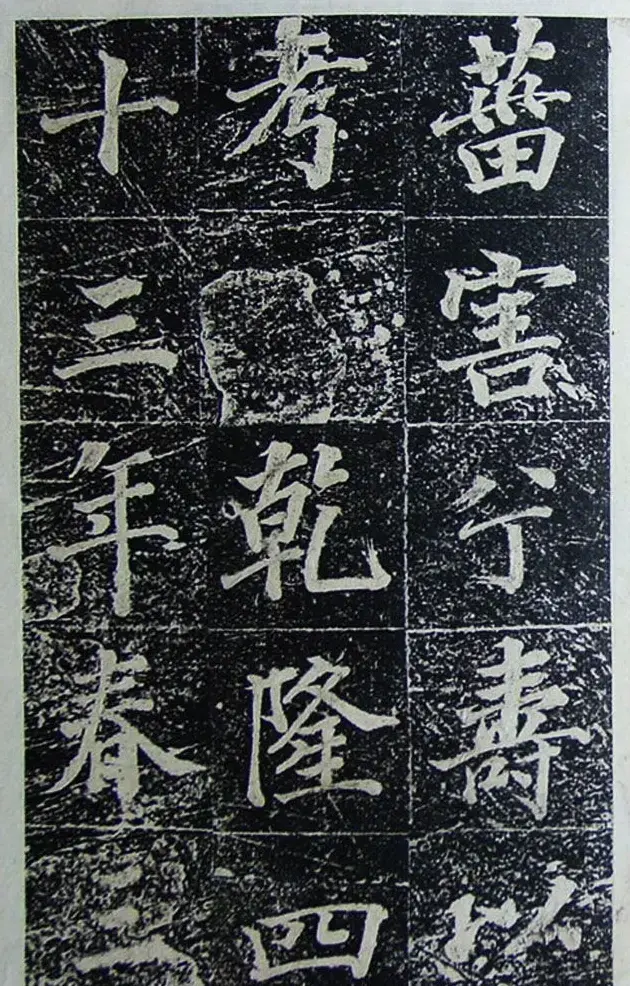 菑害兮壽以
考乾隆四
十三年春三